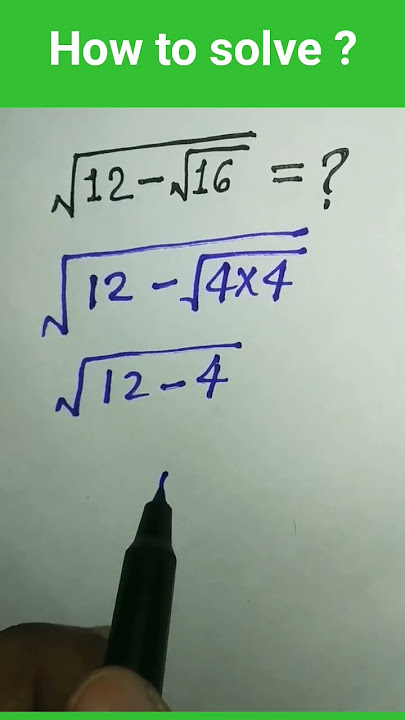 How to solve ?
√(12-√16) = ?
√(12-√(4×4))
√(12-4)